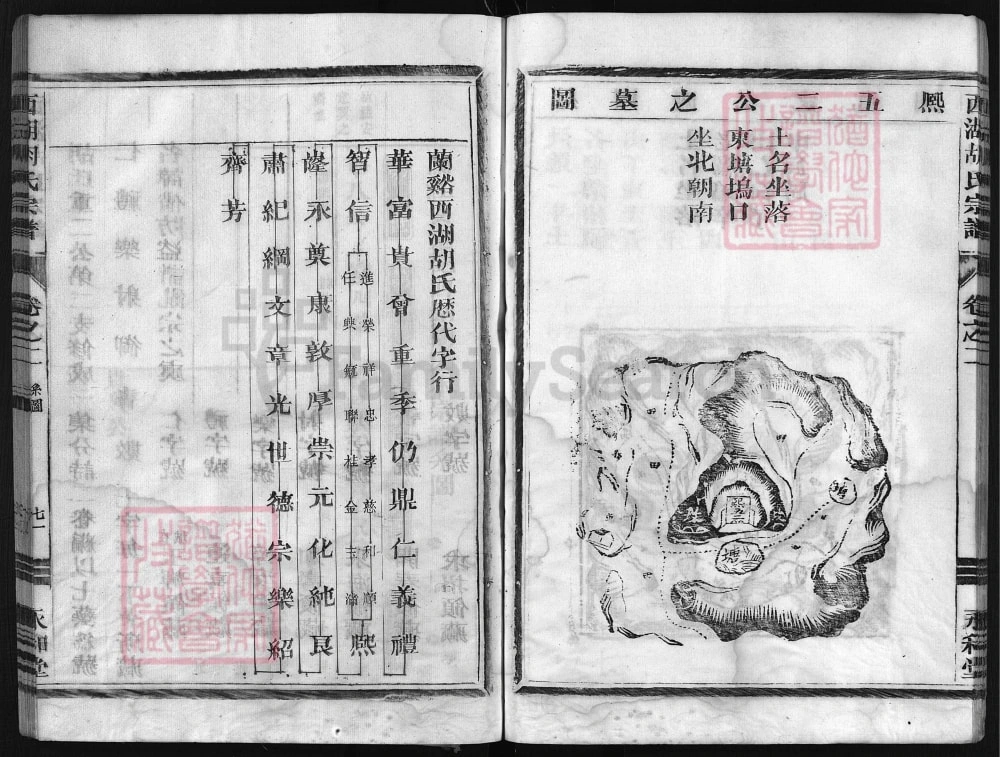 西湖胡氏宗譜
卷之二
永和堂
熈五二公之墓圖
土名坐落
東塘塢口
坐北朝南
塘
蘭谿西湖胡氏歷代字行
華富貴曾重季仍鼎仁義禮
智信
進榮祥忠孝慈和順
任興
聯桂金玉滿
熈
隆丞奠康敦厚崇元化純良
肅紀綱文章光世德宗樂紹
齊芳
西湖胡氏宗譜
卷之二
系圖
七一
永和堂
FamilySearch